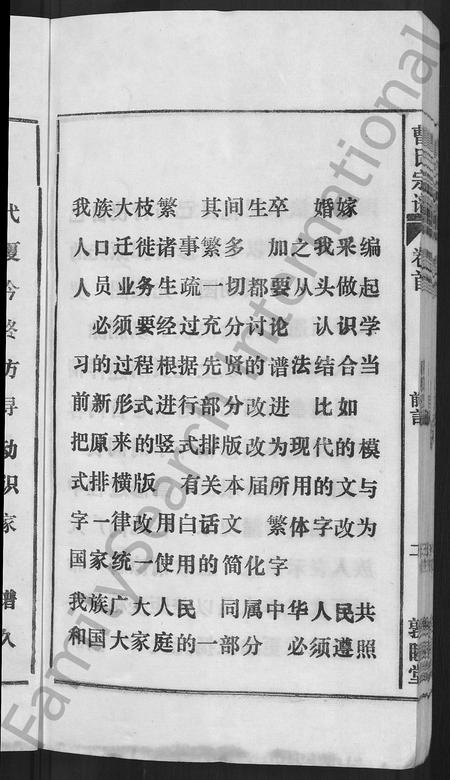 我族大枝繁　其间生卒　婚嫁
人口迁徙诸事繁多　加之我采编
人员业务生疏一切都要从头做起
必须要经过充分讨论　认识学
习的过程根据先贤的谱法结合当
前新形式进行部分改进　比如
把原来的竖式排版改为现代的模
式排横版　有关本届所用的文与
字一律改用白话文　繁体字改为
国家统一使用的简化字
我族广大人民　同属中华人民共
和国大家庭的一部分　必须遵照
曹氏宗谱
卷首
前言
二
敦睦堂
代
夏
今
终
方
寻
动
识
家
谱
久
FamilySearch International